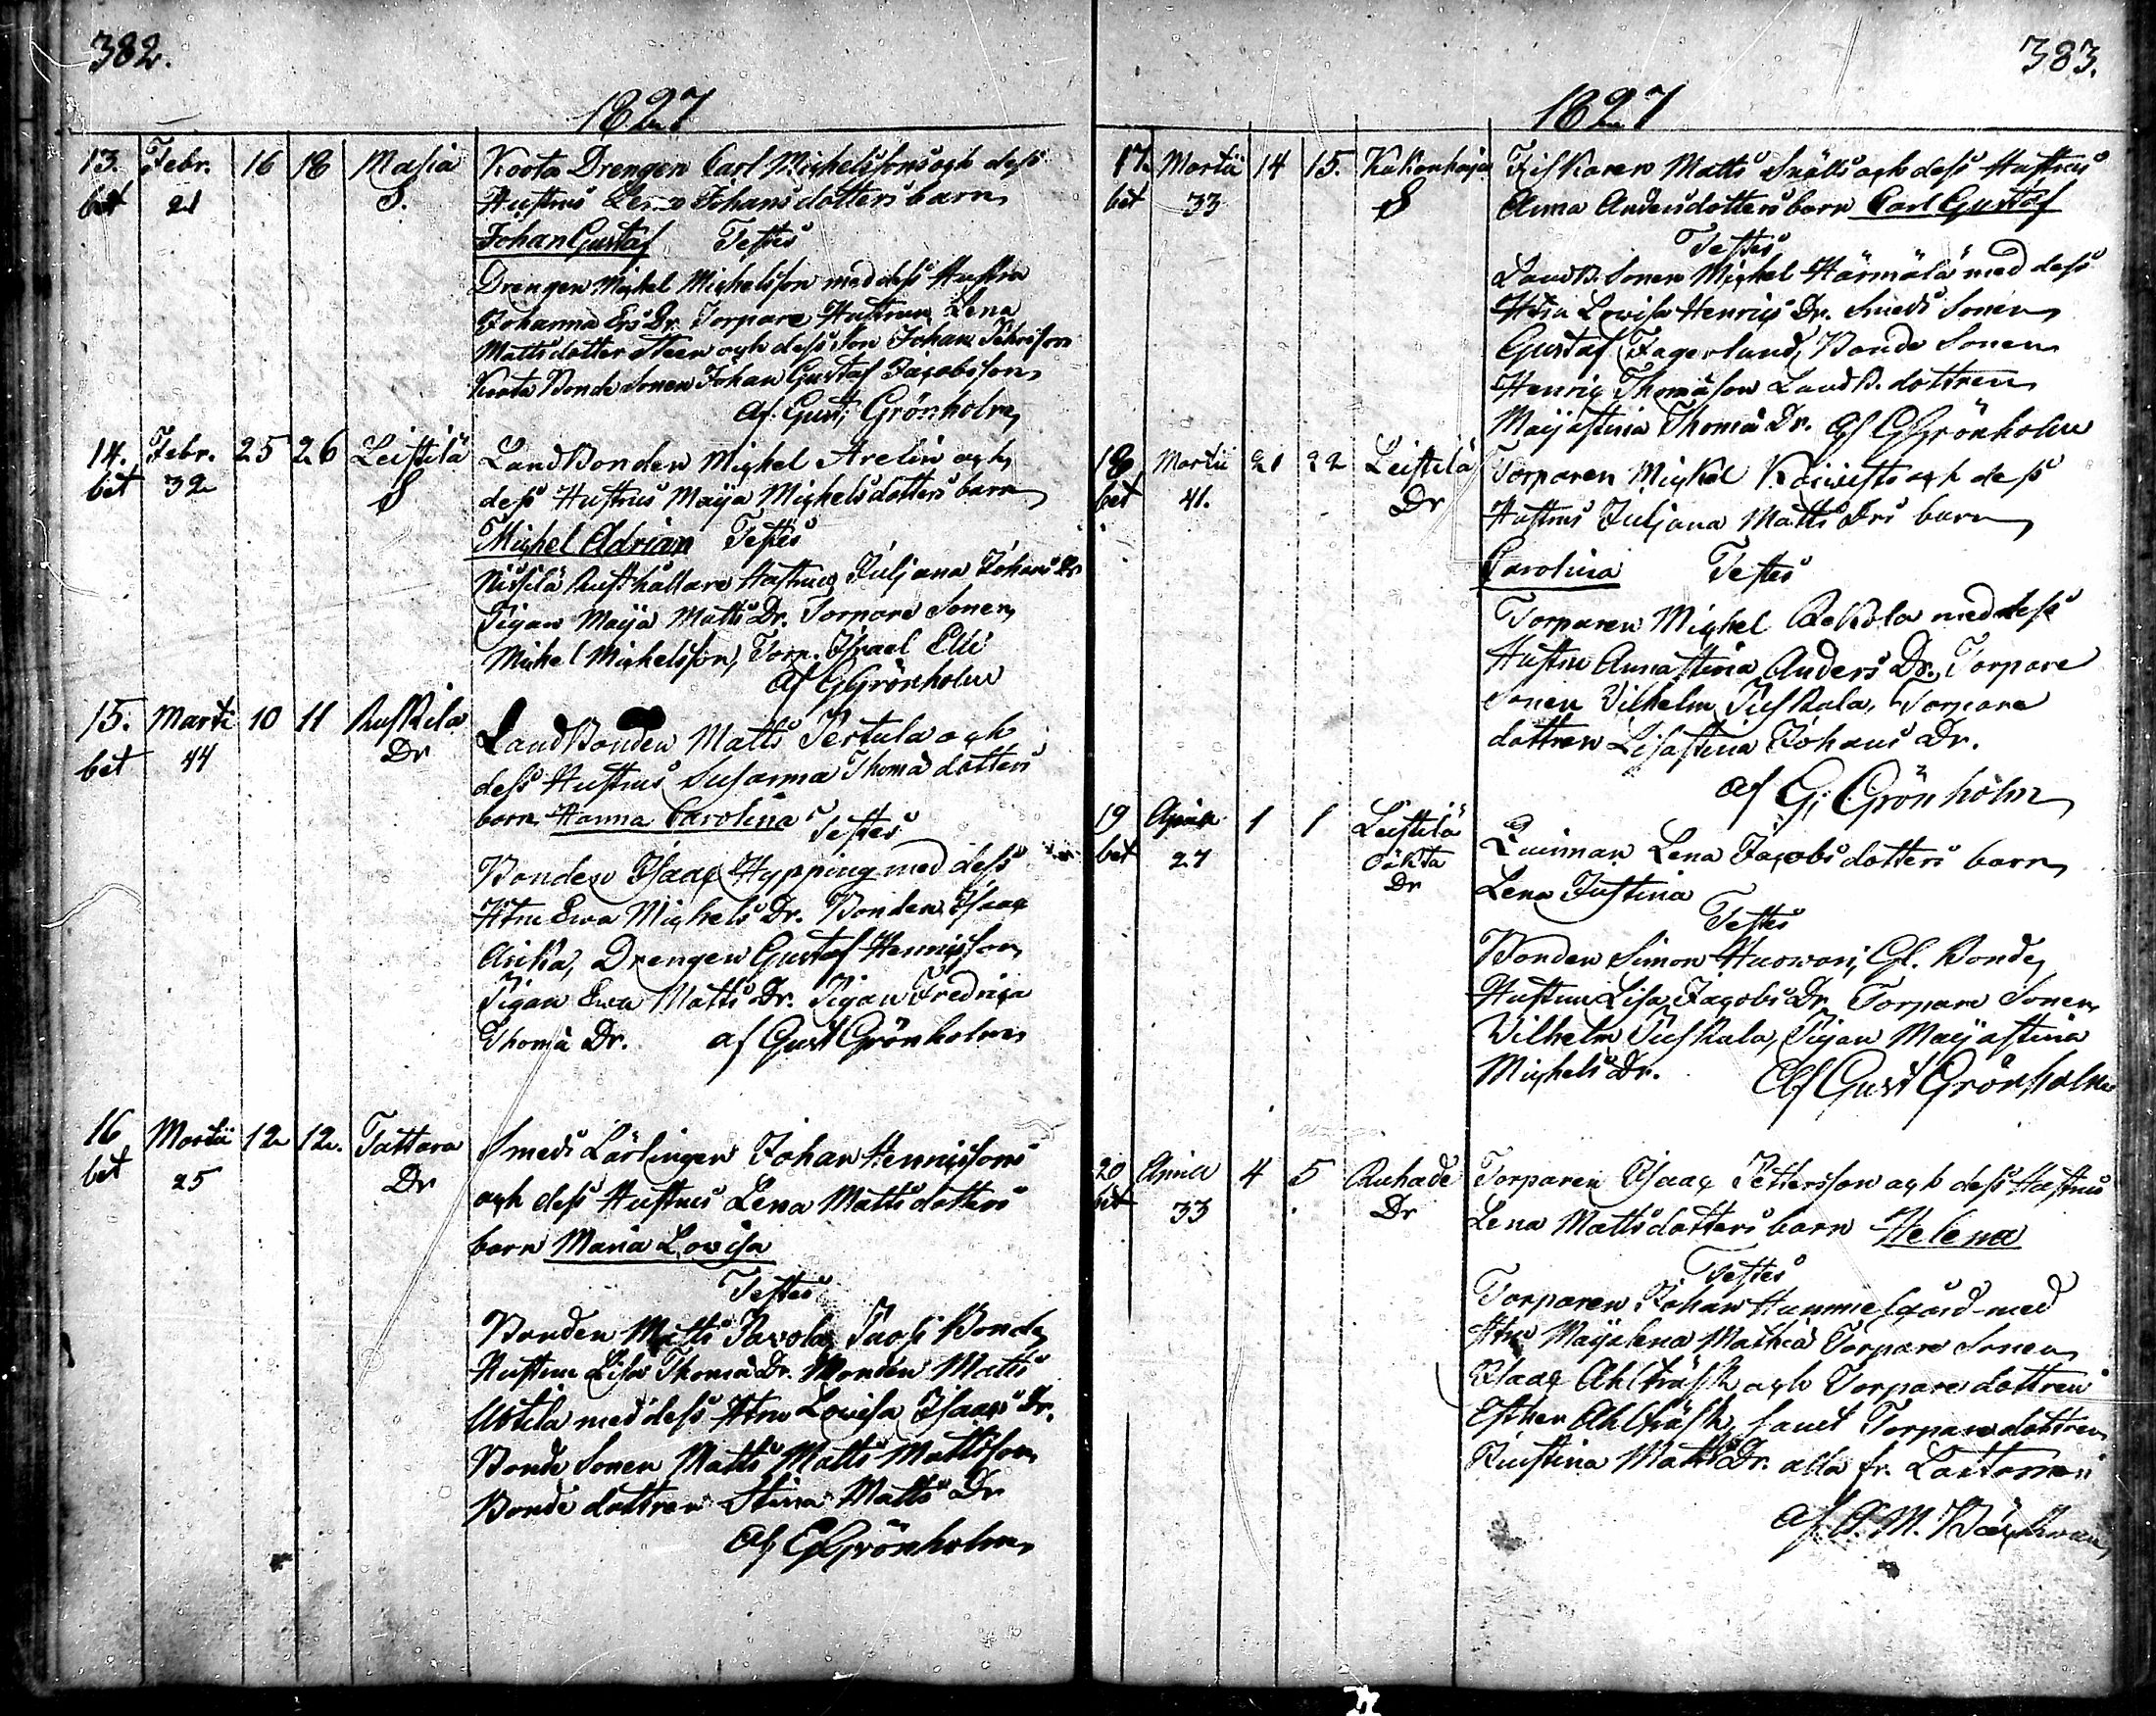 382.
1827
13. Febr. 16 18 Masia Koota Drengen Carl Michelssons och dess
bet 21 S. Hustrus Lena Johans dotters barn
Johan Gustaf Testes
Drengen Michel Michelsson med dess Hustru
Johanna Ers Dr. Torpare Hustrun Lena
Mattsdotter Steen och dess son Johan
Koota Bonde Sonen Johan Gustaf Jacobsson
Af. Gust: Grönholm
14. Febr. 25 26 Leistilä LandBonden Michel Arelin och
bet 32 S dess Hustrus Maija Michelsdotters barn
Michel Adrian Testes
Nissilä Rusthållare Hustrun Juljana Johans Dr
Pigan Maija Matts Dr. Torpare Sonen
Michel Michelsson, Torp. Israel Elli
Af GGrönholm
15. Marti 10 11 Ruskila LandBonden Matts Pertula och
bet 44 Dr dess Hustrus Susanna Thomä dotters
barn Hanna Carolina Testes
Bonden Isaac Hypping med dess
Htru Ewa Michels Dr. Bonden Isaac
Arika, Drengen Gustaf Henricsson
Pigan Ewa Matts Dr. Pigan Fredrica
Thomä Dr. af Gust Grönholm
16 Martii 12 12. Tattara Smeds Lärlingen Johan Henricssons
bet 25 Dr och dess Hustrus Lena Mattsdotters
barn Maria Lovisa
Testes
Bonden Matts Pavola, Bonde
Hustrun Lisa Thomä Dr. Bonden Matts
Uotila med dess Htru Lovisa Isaacs Dr.
Bonde Sonen Matts Matts Mattsson
Bonde dottren Stina Matts Dr
Af GGrönholm
383.
1827
17. Martii 14 15. Kukonharja Fiskaren Matts Snälls och dess Hustrus
bet 33 S Anna Andersdotters barn Carl Gustaf
Testes
LandB. Sonen Michel Härmälä med dess
Htru Lovisa Henrics Dr. Smeds Sonen
Gustaf Fagerlund, Bonde Sonen
Henric Thomäson LandB. dottren
Maijastina Thomä Dr. Af GGrönholm
18 Martii 21 22 Leistilä Torparen Michel Koivisto och dess
bet 41. Dr Hustrus Juljana Matts Drs barn
Carolina Testes
Torparen Michel Rekola med dess
Hustru Annastina Anders Dr., Torpare
Sonen Vilhelm Juskala, Torpare
dottren Lisastina Johans Dr.
af G; Grönholm
19 April 1 1 Leistilä Quinnan Lena Jacobsdotters barn
bet 27 oäkta Dr Lena Justina
Testes
Bonden Simon Huowari, Gl. Bonde
Hustrun Lisa Jacobs Dr Torpare Sonen
Wilhelm Juskala, Pigan Maijastina
Michels Dr. Af Gust Grönholm
20 April 4 5 Ruhade Torparen Isaac Pettersson och dess Hustrus
bet 33 Dr Lena Mattsdotters barn Helena
Testes
Torparen Johan med
Htru Maijalena Mathiä Torpare Sonen
Isaac Ahlträsk och Torpare dottren
Esther Ahlträsk, samt Torpare dottren
Kristina Matts Dr. alla fr. Laitomeri
af